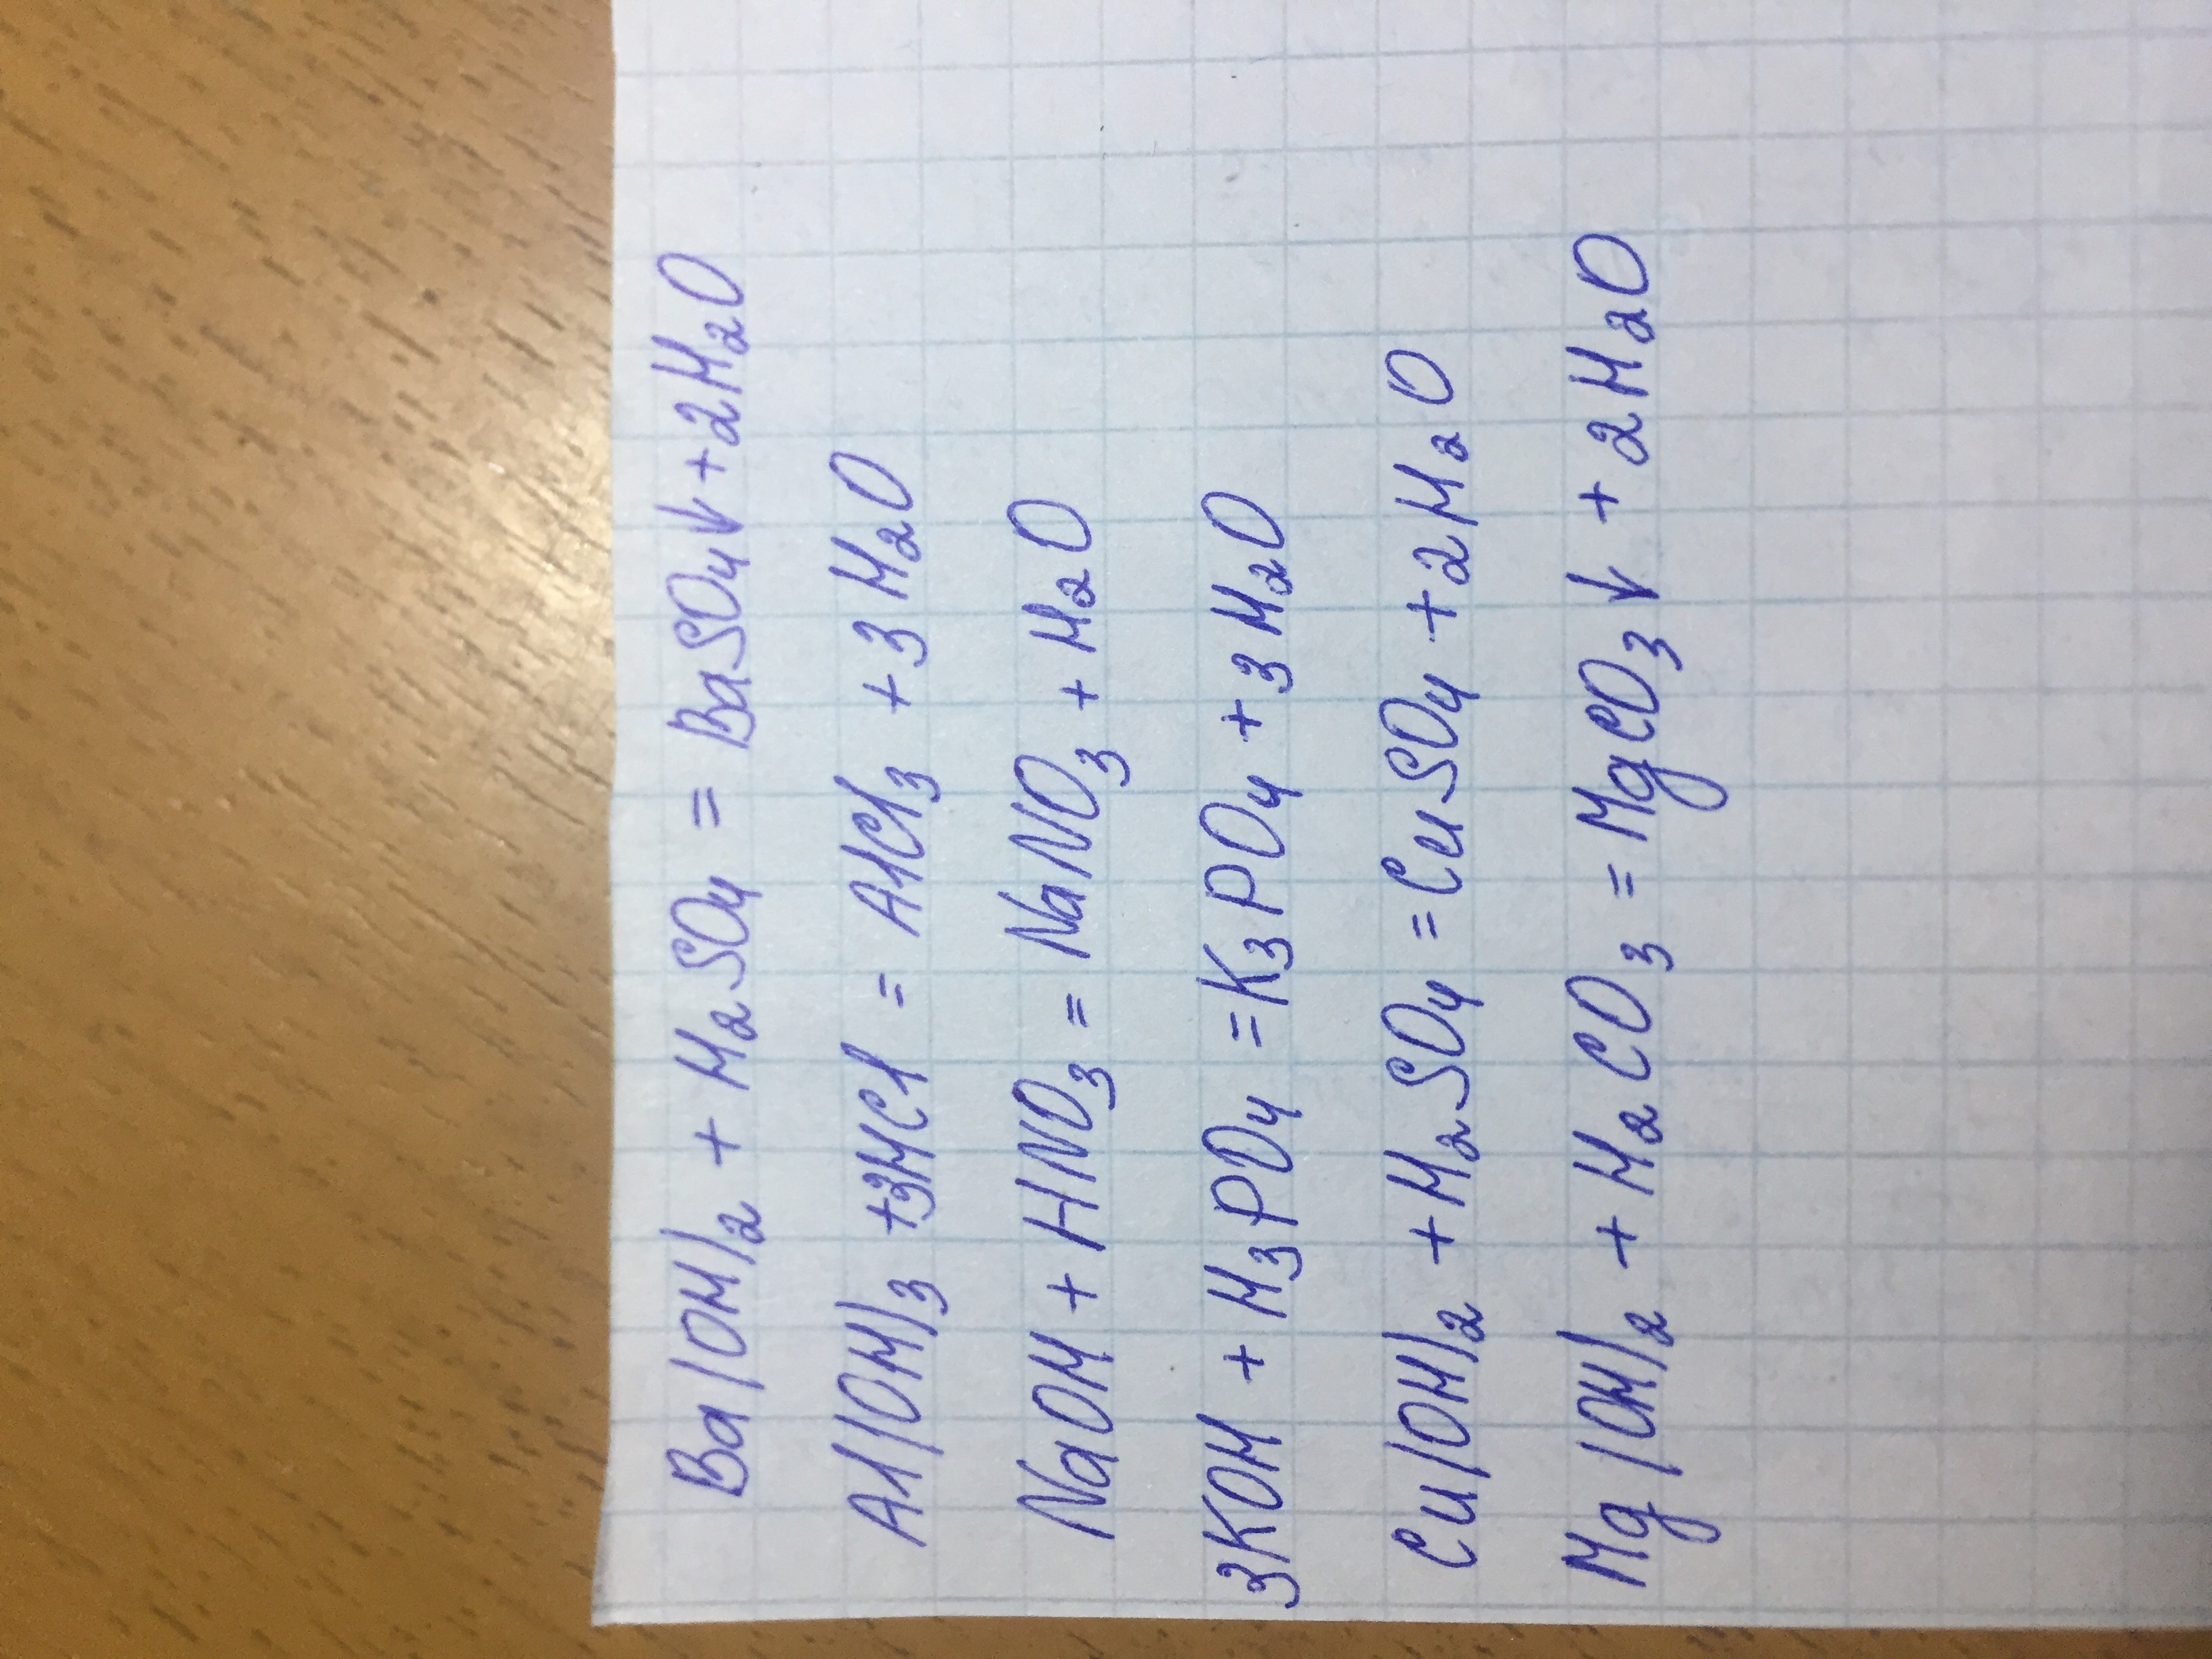 Ba(OH)₂ + H₂SO₄ = BaSO₄↓ + 2H₂O
Al(OH)₃ + 3HCl = AlCl₃ + 3H₂O
NaOH + HNO₃ = NaNO₃ + H₂O
3KOH + H₃PO₄ = K₃PO₄ + 3H₂O
Cu(OH)₂ + H₂SO₄ = CuSO₄ + 2H₂O
Mg(OH)₂ + H₂CO₃ = MgCO₃↓ + 2H₂O